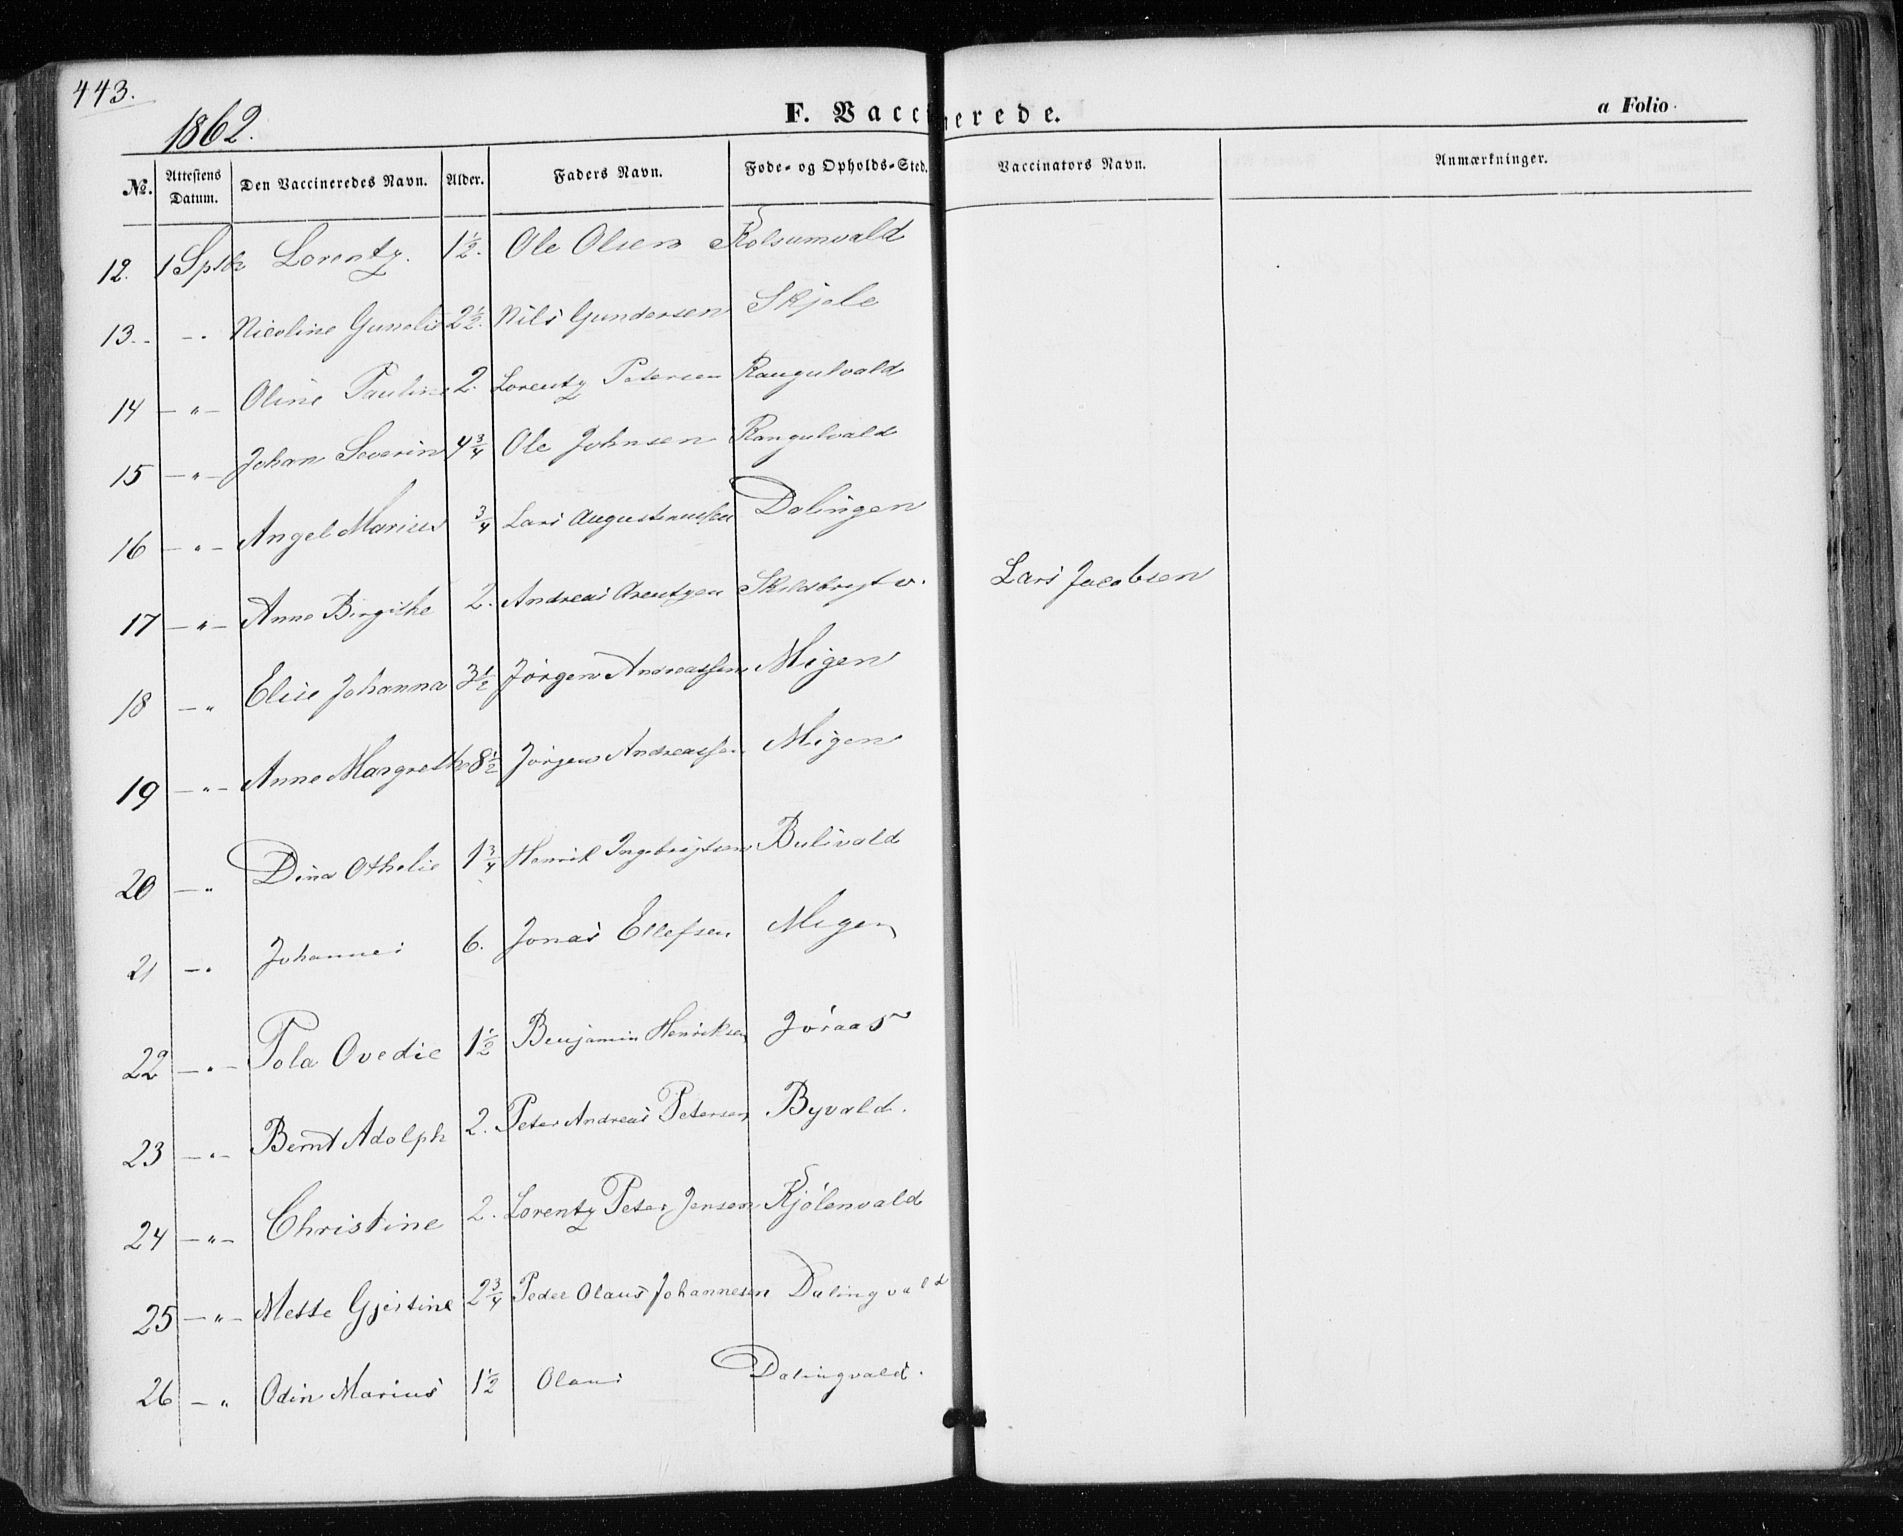 443.
1862.
F. Vaccinerede.
a Folio
No. Attestens Datum. Den Vaccineredes Navn. Alder. Faders Navn. Føde- og Opholds-Sted. Vaccinators Navn. Anmærkninger.
12. 1 Sptbr Lorentz. 1½. Ole Olsen Kolsumvald
13. -. Nicoline 2½. Nils Gundersen Skjele
14 -"- Oline Pauline 2. Lorentz Petersen Rangulvald
15 -"- Johan Severin 4¾ Ole Johnsen Rangulvald
16 -"- Angel Marius ¾ Lars Augustinussen Dalingen
17 -"- Anne Birgithe 2. Andreas Arentzen v. Lars Jacobsen
18 -" Elise Johanna 3½ Jørgen Andreassen Migen
19 -"- Anne Margrethe 8½ Jørgen Andreassen Migen
20 -" Dina Othelie 1¾ Henrik Ingebrigtsen Bulivald
21 -" Johannes 6. Jonas Ellefsen Migen
22 -"- Tola Ovedie 1½ Benjamin Henriksen Jøraas
23 -"- Bernt Adolph 2. Peter Andreas Petersen Byvald.
24 -"- Christine 2. Lorentz Peter Jensen Kjølenvald
25 -"- Mette Gjertine 2¾ Peder Olaus Johannesen Dalingvald
26 -" Odin Marius 1½ Olaus Dalingvald.